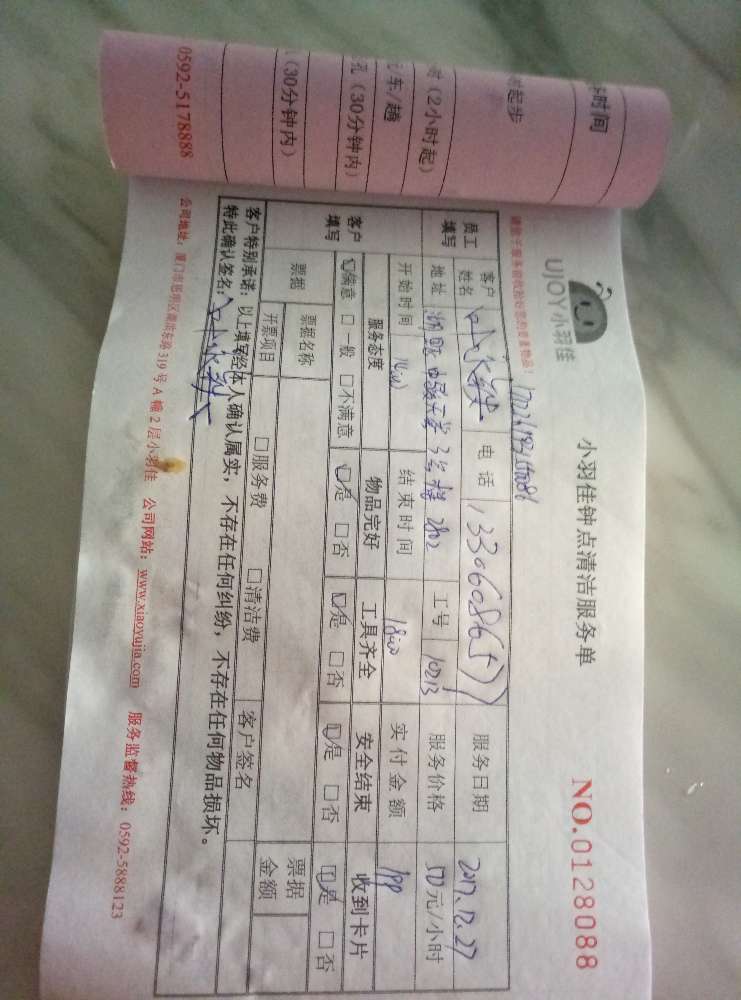 UJOY小羽佳
小羽佳钟点清洁服务单
NO.0128088
员工填写 客户姓名 电话 服务日期 2017.12.27
地址 工号 10213 服务价格 50元/小时
开始时间 14:00 结束时间 18:00 实付金额 199
客户填写 服务态度 物品完好 工具齐全 安全结束 收到卡片
☑满意 □一般 □不满意 ☑是 □否 ☑是 □否 ☑是 □否 ☑是 □否
票据 票据名称 客户签名 票据金额
开票项目 □服务费 □清洁费
客户特别承诺：以上填写经本人确认属实，不存在任何纠纷，不存在任何物品损坏。
特此确认签名：
公司地址：厦门市思明区湖滨东路319号A幢2层小羽佳 公司网站：www.xiaoyujia.com 服务监督热线：0592-5888123
时间
时起步
时（2小时起）
车/趟
孔（30分钟内）
（30分钟内）
0592-5178888